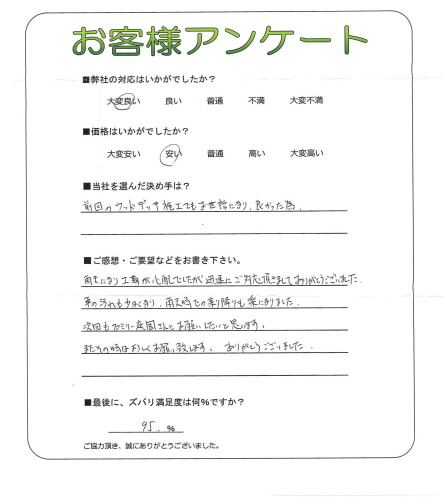 お客様アンケート
■弊社の対応はいかがでしたか？
大変良い 良い 普通 不満 大変不満
■価格はいかがでしたか？
大変安い 安い 普通 高い 大変高い
■当社を選んだ決め手は？
前回のウッドデッキ施工でもお世話になり、良かった為、
■ご感想・ご要望などをお書き下さい。
雨天になり工事が心配でしたが迅速にご対応頂きましてありがとうございました。
車の汚れも少なくなり、雨天時での乗り降りも楽になりました。
次回もファミリー庭園さんとお願いしたいと思います。
またその時はよろしくお願い致します。ありがとうございました。
■最後に、ズバリ満足度は何%ですか？
95. %
ご協力頂き、誠にありがとうございました。